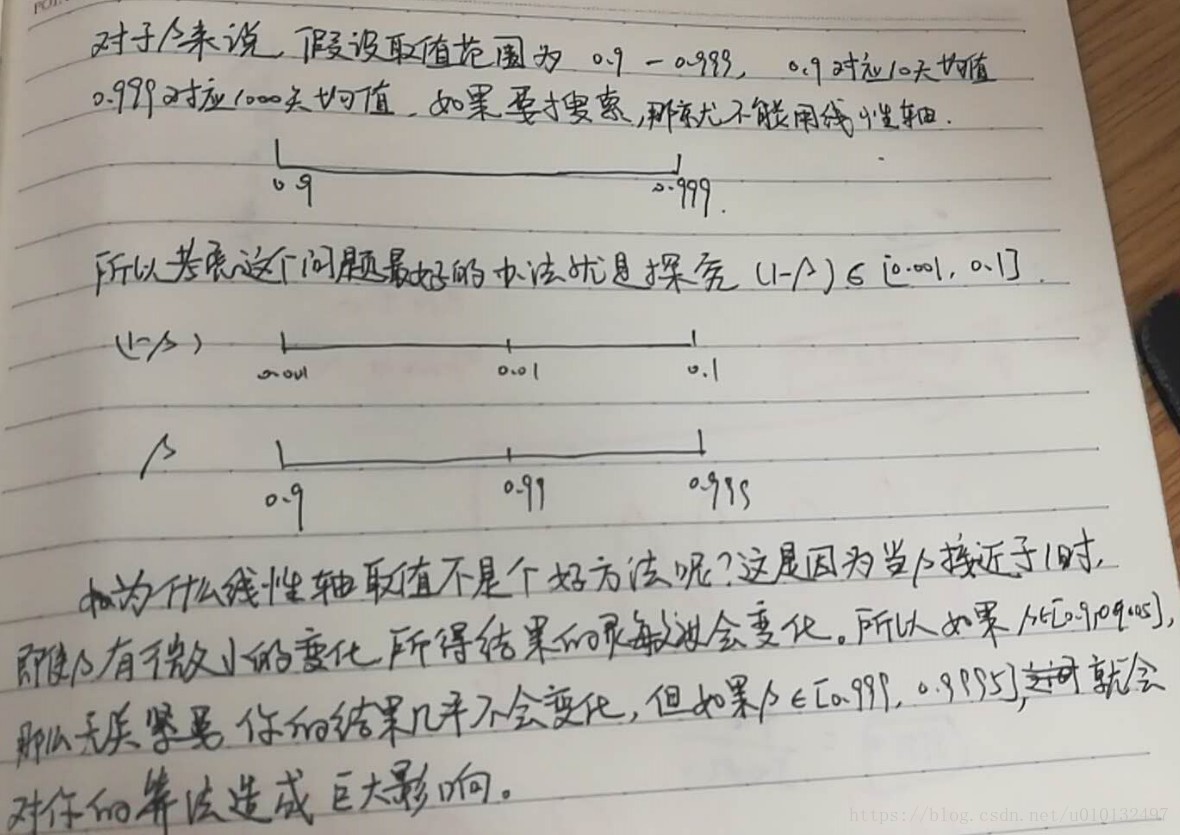 对于β来说,假设取值范围为 0.9 - 0.999, 0.9对应10天均值
0.999对应1000天均值,如果要搜索,那就不能用线性轴.
0.9 0.999.
所以考虑这个问题最好的办法就是探究 (1-β) ∈ [0.001, 0.1].
(1-β)
0.001 0.01 0.1
β
0.9 0.99 0.999
为什么线性轴取值不是个好方法呢?这是因为当β接近于1时,
即使β有微小的变化,所得结果的灵敏度会变化。所以如果β∈[0.9,0.9005],
那么无关紧要,你的结果几乎不会变化,但如果β∈[0.999, 0.9995],就会
对你的算法造成巨大影响。
https://blog.csdn.net/u010132497